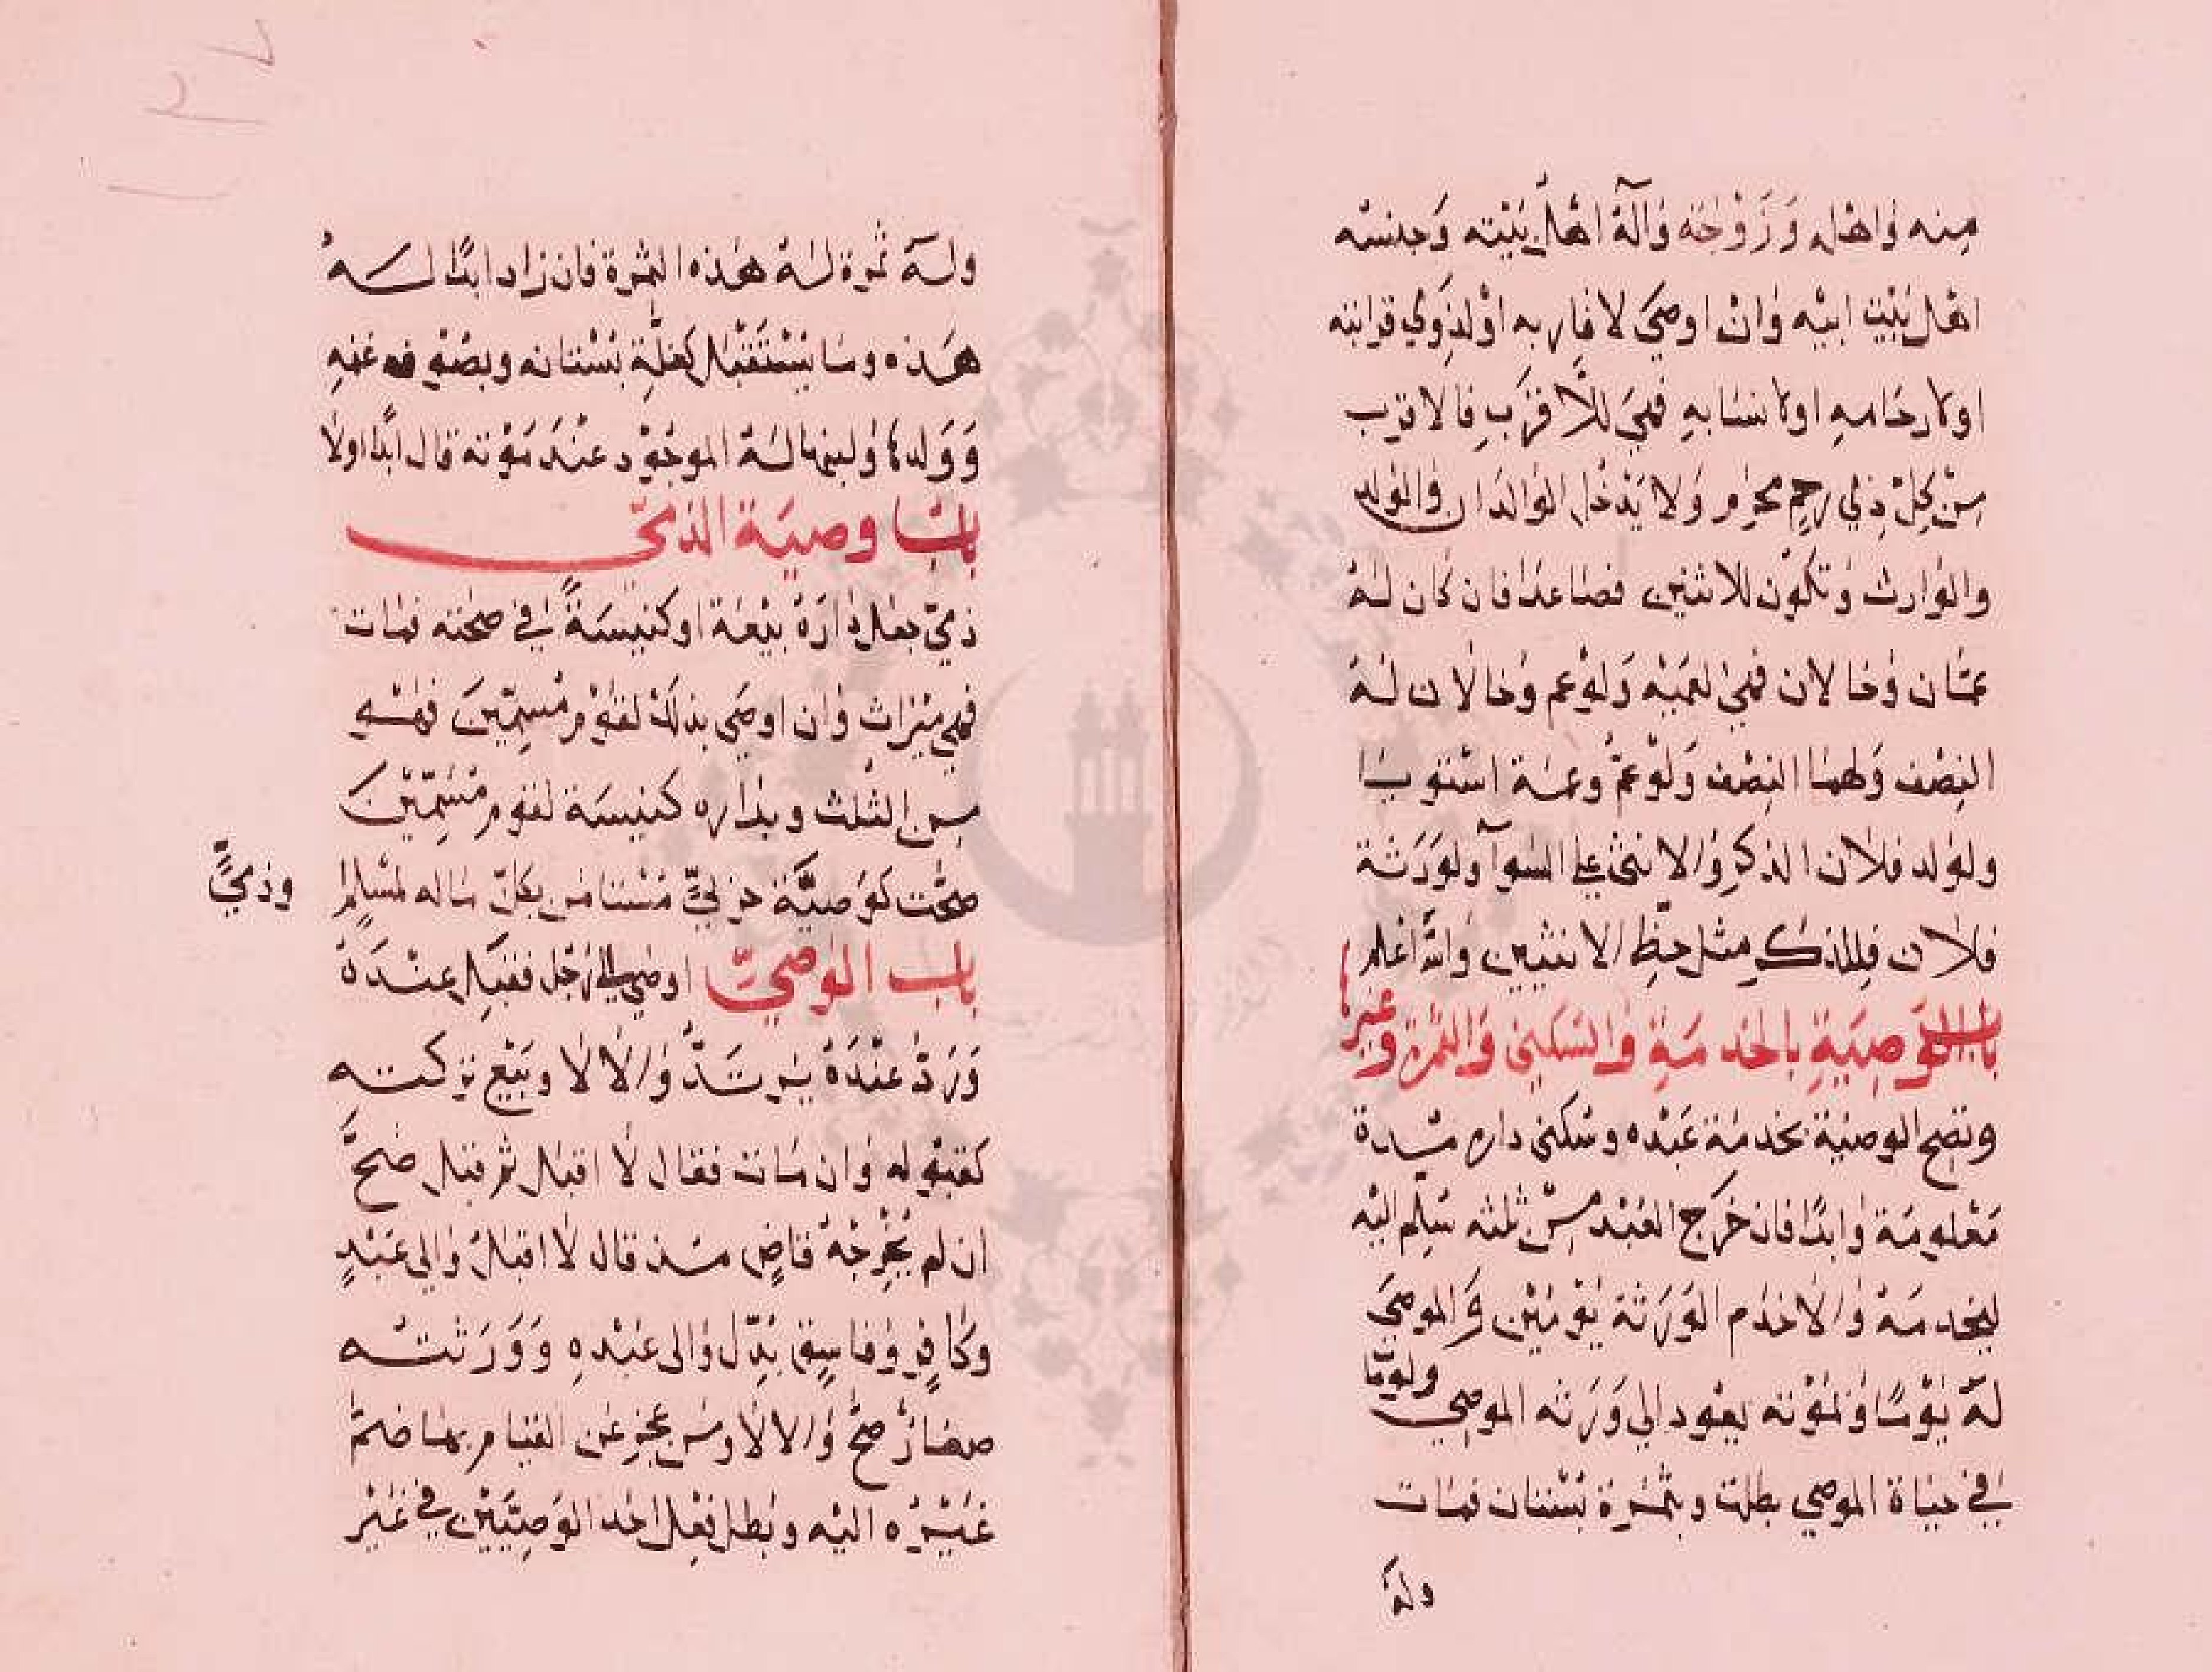 منه واهله وزوجته وآله اهل بيته وجنسه
اهل بيت ابيه وان اوصى لاقاربه او لذوي قرابته
او لارحامه او لانسابه فهي للاقرب فالاقرب
من كل ذي رحم محرم ولا يدخل الوالدان والولد
والوارث وتكون للاثنين فصاعدا فان كان له
عمان وخالان فهي لعميه ولو عم وخالان له
النصف ولهما النصف ولو عم وعمة استويا
ولولد فلان الذكر والانثى على السوآ ولورثة
فلان فللذكر مثل حظ الانثيين والله اعلم
باب الوصية بالخدمة والسكنى والثمرة وغيرها
وتصح الوصية بخدمة عبده وسكنى داره مدة
معلومة وابدا فان خرج العبد من ثلثه سلم اليه
ليخدمه والا خدم الورثة يومين والموصى
له يوما وبموته يعود الى ورثة الموصي ولو مات
في حياة الموصي بطلت وبثمرة بستان فمات
وله
وله ثمرة له هذه الثمرة فان زاد ابدا له
هذه وما يستقبل كغلة بستانه وبصوف غنمه
وولدها ولبنها له الموجود عند موته قال ابدا اولا
باب وصية الذمي
ذمي جعل داره بيعة او كنيسة في صحته فمات
فهي ميراث وان اوصى بذلك لقوم مسمين فهي
من الثلث وبداره كنيسة لقوم مسمين
صحت كوصية حربي مستامن بكل ماله لمسلم
وذمي
باب الوصي اوصى الى رجل فقبل عنده
ورد عنده يرتد والا لا وبيع تركته
كقبوله وان مات فقال لا اقبل ثم قبل صح
ان لم يخرجه قاض مذ قال لا اقبل والى عبد
وكافر وفاسق بدل والى عبده وورثته
صغار صح والا لا ومن عجز عن القيام بها ضم
غيره اليه وبطل فعل احد الوصيين في غير